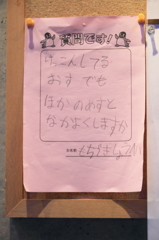 質問です!
けっこんしてる
おすでも
ほかのめすと
なかよくしますか
お名前